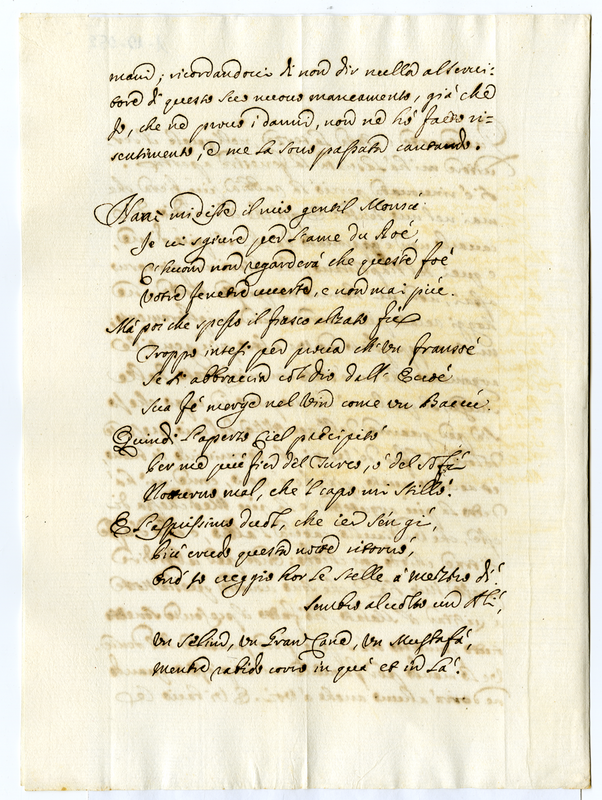 mani; ricordandoci di non dir nulla al servi:
tore di questo suo nuovo mancamento, già che
Io, che ne provo i danni, non ne hò fatto ri=
sentimento, e me la sono passata cantando.
Nanè mi diste il mio gentil Monsù
Je vi sgiure per l'ame du Roé,
Ch'huom non regarderà che queste foé
Votre fenetre uverte, e non mai piúe.
Mà poi che spesso il fiasco alzato fú
Troppo intesi per prova ch'un fransoé
Se si abbraccia col dio dall' Evoé
Sua fè merge nel vin come un Baccú.
Quindi l'aperto Ciel precipitò
Per me più fier del Turco, ò del Sofí
Notturno mal, che 'l capo mi stillò.
E l'asprissimo duol, che ier sén gì,
Più crudo questa notte ritornò,
Ond' io veggio hor le stelle a mezzo dì.
Sembro al volto un Alí,
Un Selino, un Gran Cane, un Mustafà,
Mentre rabido corro in quà et in là.